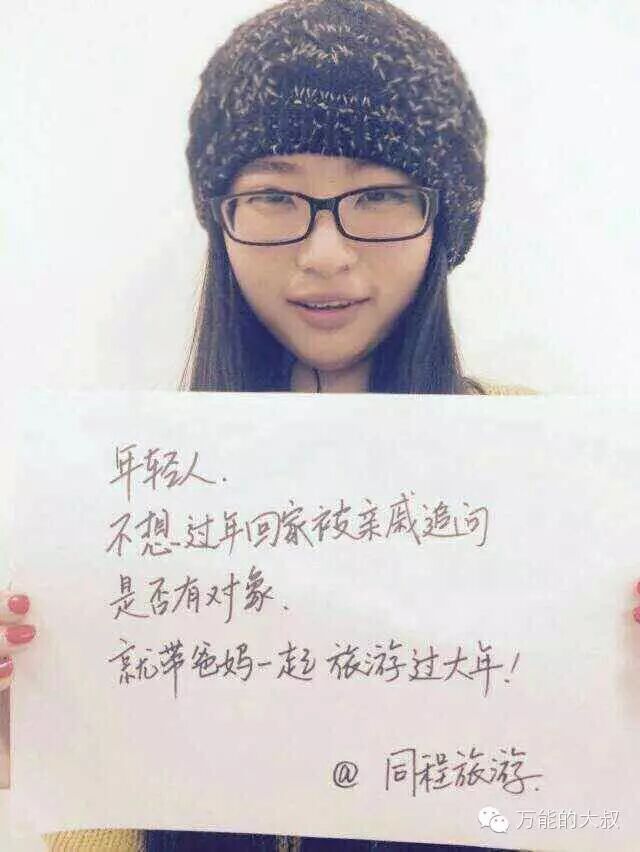 年轻人.
不想过年回家被亲戚追问
是否有对象.
就带爸妈一起旅游过大年!
@ 同程旅游.
万能的大叔